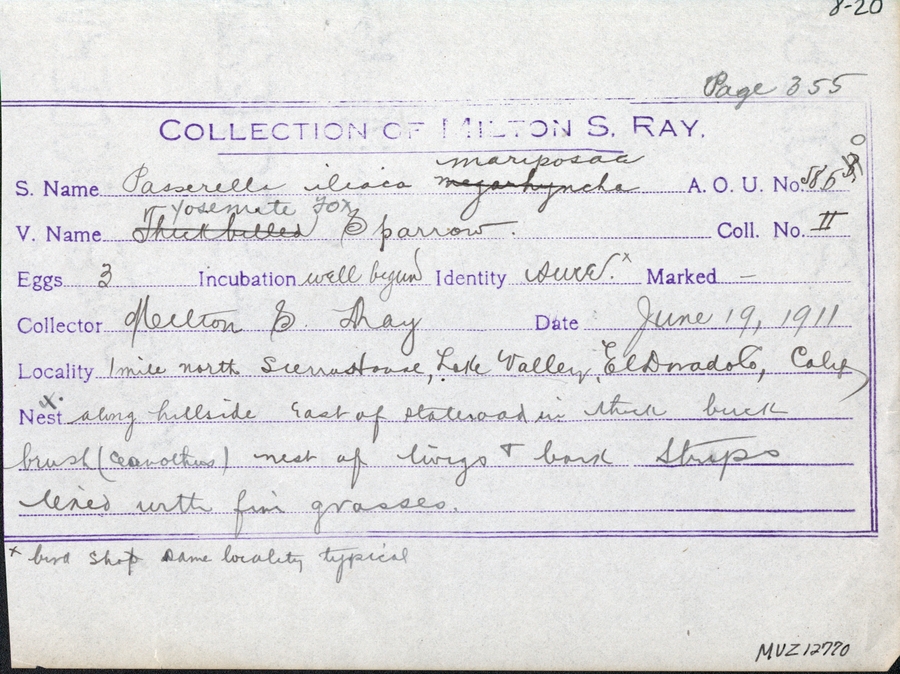 8-20
Page 355
COLLECTION OF MILTON S. RAY.
mariposae
S. Name Passerella iliaca megarhyncha A. O. U. No. 585
Yosemite Fox
V. Name Thick billed Sparrow. Coll. No. II
Eggs 3 Incubation well begun Identity sure.x Marked —
Collector Milton S. Ray Date June 19, 1911
Locality 1 mile north Sierra House, Lake Valley, El Dorado Co, Calif
Nest x. along hillside East of stateroad in thick buck
brush (ceanothus) nest of twigs & bark strips
lined with fine grasses.
x bird shot same locality typical
MUZ 12770